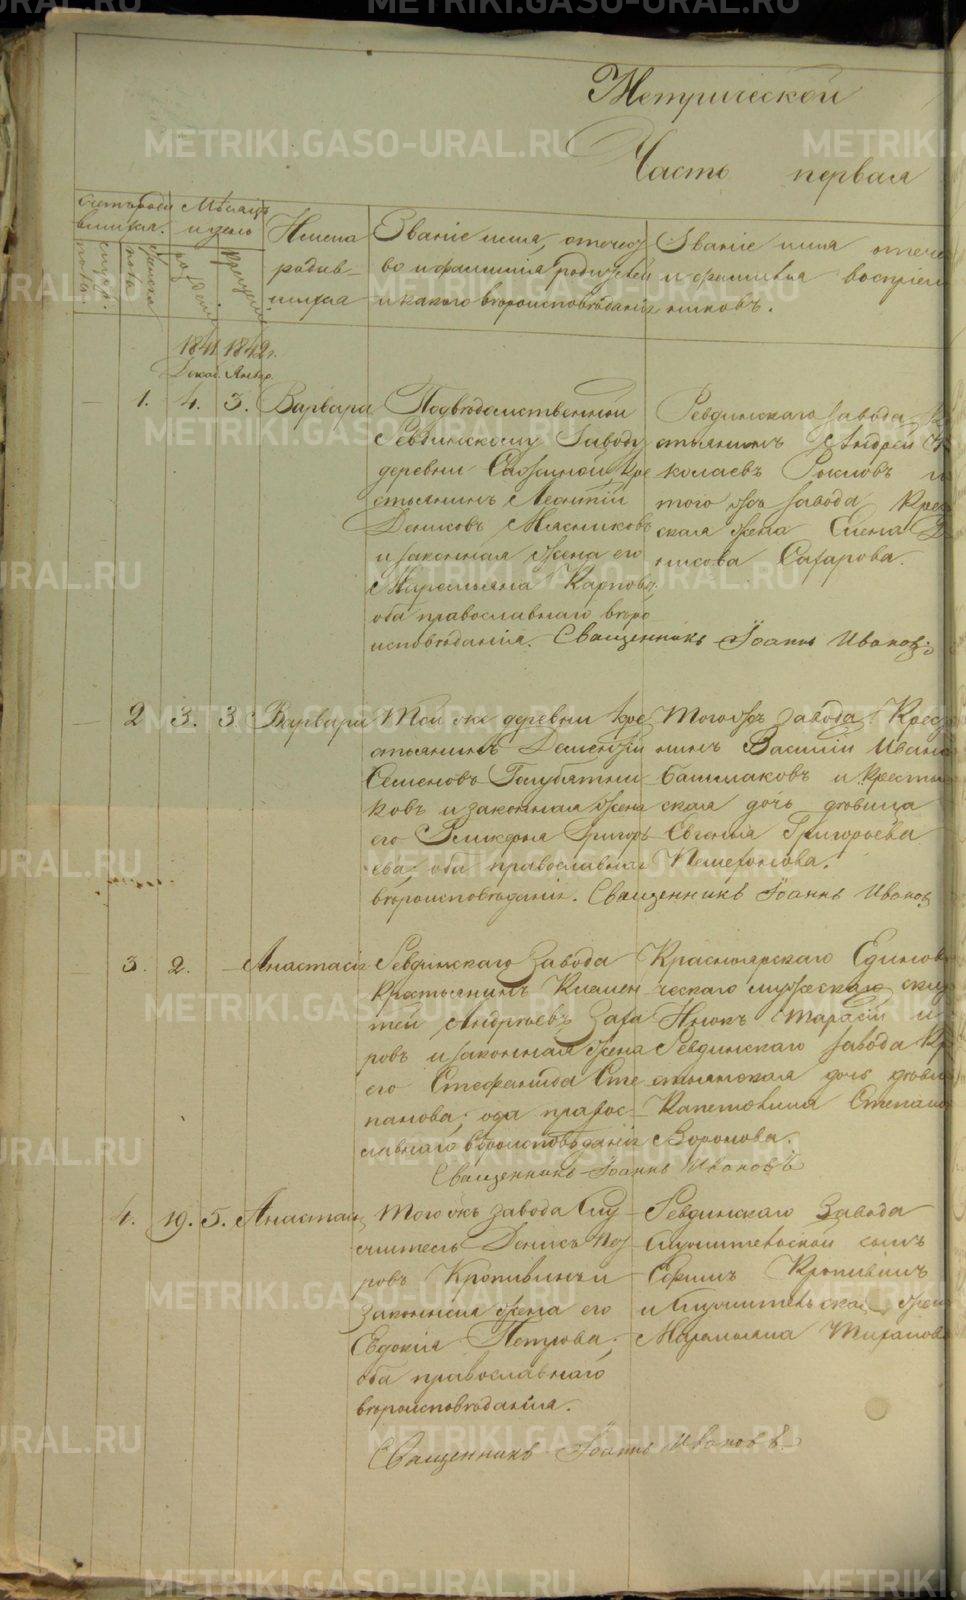 Метрической
Часть первая
Счетъ роди
вшихся.
Мѣсяцъ
и день
Имена
родив-
шихся
Званіе имя, отечест
во и фамилія родителей
и какого вѣроисповѣданія
Званіе имя отече
и фамилія воспріем
никовъ.
мужеска
пола
женска
пола
рожденія
крещенія
1841 1842 г.
Декаб. Январ.
1. 4. 3. Варвара
Подвѣдомственный
Ревдинскому Заводу
деревни кре
стьянинъ Леонтій
Денисовъ Мясниковъ
и законная жена его
Маремьяна Карпова
оба православнаго вѣро
исповѣданія. Священникъ Іоаннъ Ивановъ
Ревдинскаго завода кр
стьянинъ Андрей Ни
колаевъ и
того жъ завода Крест
ская жена Елена Д
нисова Сафарова.
2 3. 3. Варвара
Той же деревни кре
стьянинъ Дементій
Семеновъ Голубятни
ковъ и законная жена
его Гликерія Григорь
ева, оба православнаго
вѣроисповѣданія. Священникъ Іоаннъ Ивановъ
Того жъ завода Кресть
нинъ Василій Ивано
Башмаковъ и крестья
ская дочь дѣвица
Евгенія Григорьева
3. 2. Анастасія
Ревдинскаго Завода
Крестьянинъ Климен
тей Андреевъ Заха
ровъ и законная жена
его Стефанида Сте
панова, оба правос-
лавнаго вѣроисповѣданія
Священникъ Іоаннъ Ивановъ
Красноярскаго Единов
ческаго мужскаго ски
Инокъ Тарасій и
Ревдинскаго завода Кр
стьянская дочь дѣви
Капетолина Степано
Воронова.
4. 19. 5. Анастасія
Того жъ завода Слу
житель Денисъ
ровъ Кропивинъ и
законная жена его
Евдокія Петрова,
оба православнаго
вѣроисповѣданія.
Священникъ Іоаннъ Ивановъ
Ревдинскаго Завода
Служительской сынъ
Ефимъ Кропивинъ
и Служительская жена
Маремьяна
METRIKI.GASO-URAL.RU